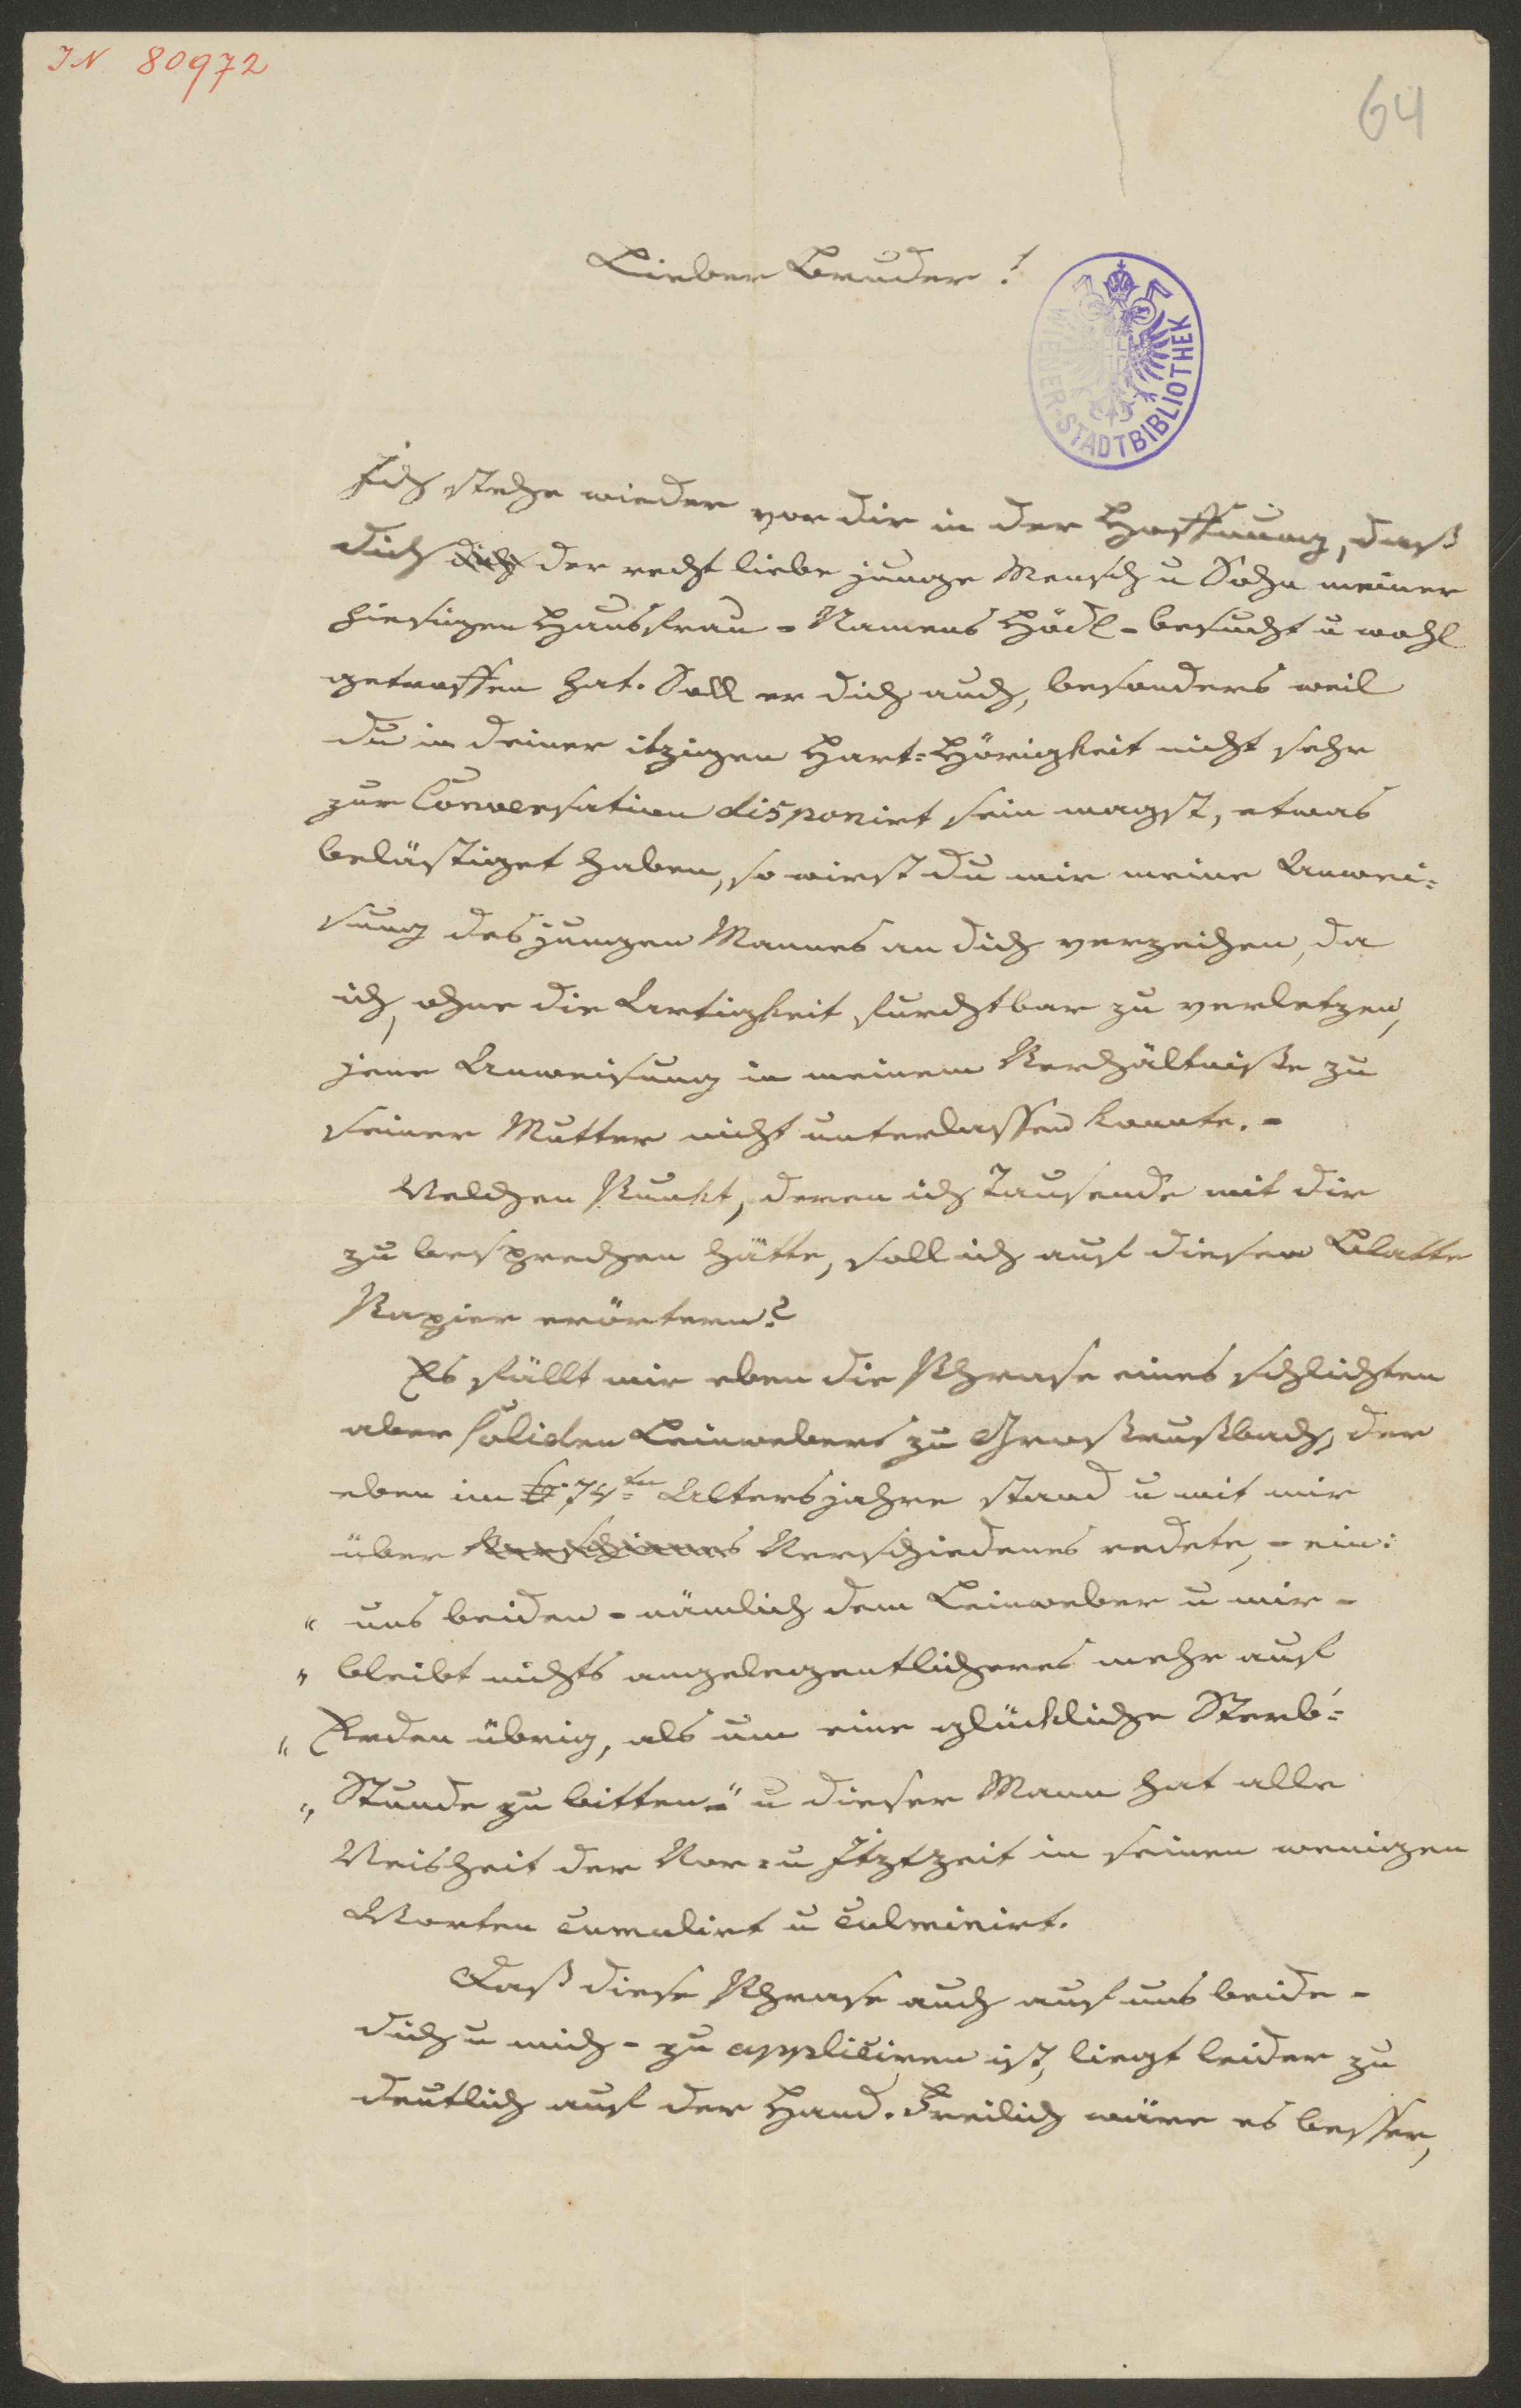 IN 80972
64
Lieber Bruder!
WIENER-STADTBIBLIOTHEK
Ich stehe wieder vor dir in der Hoffnung, daß
dich dich der recht liebe junge Mensch u Sohn meiner
hiesigen Hausfrau - Namens Hödl - besucht u wohl
getroffen hat. Soll er dich auch, besonders weil
du in deiner itzigen Hart=Hörigkeit nicht sehr
zur Conversation disponirt sein magst, etwas
belästiget haben, so wirst du mir meine Anwei=
sung des jungen Mannes an dich verzeihen, da
ich, ohne die Artigkeit furchtbar zu verletzen,
jene Anweisung in meinem Verhältniße zu
seiner Mutter nicht unterlassen konnte. -
Welchen Punkt, deren ich Tausende mit dir
zu besprechen hätte, soll ich auf diesem Blatte
Papier erörtern?
Es fällt mir eben die Phrase eines schlichten
aber soliden Leinwebers zu Großrußbach, der
eben im 74ten Altersjahre stand u mit mir
über Verschiedenes redete, - ein:
" uns beiden - nämlich dem Leinweber u mir -
" bleibt nichts angelegentlicheres mehr auf
" Erden übrig, als um eine glückliche Sterb=
" Stunde zu bitten -" u dieser Mann hat alle
Weisheit der Vor= u Itztzeit in seinen wenigen
Worten cumulirt u culminirt.
Daß diese Phrase auch auf uns beide -
dich u mich - zu appliciren ist, liegt leider zu
deutlich auf der Hand. Freilich wäre es besser,